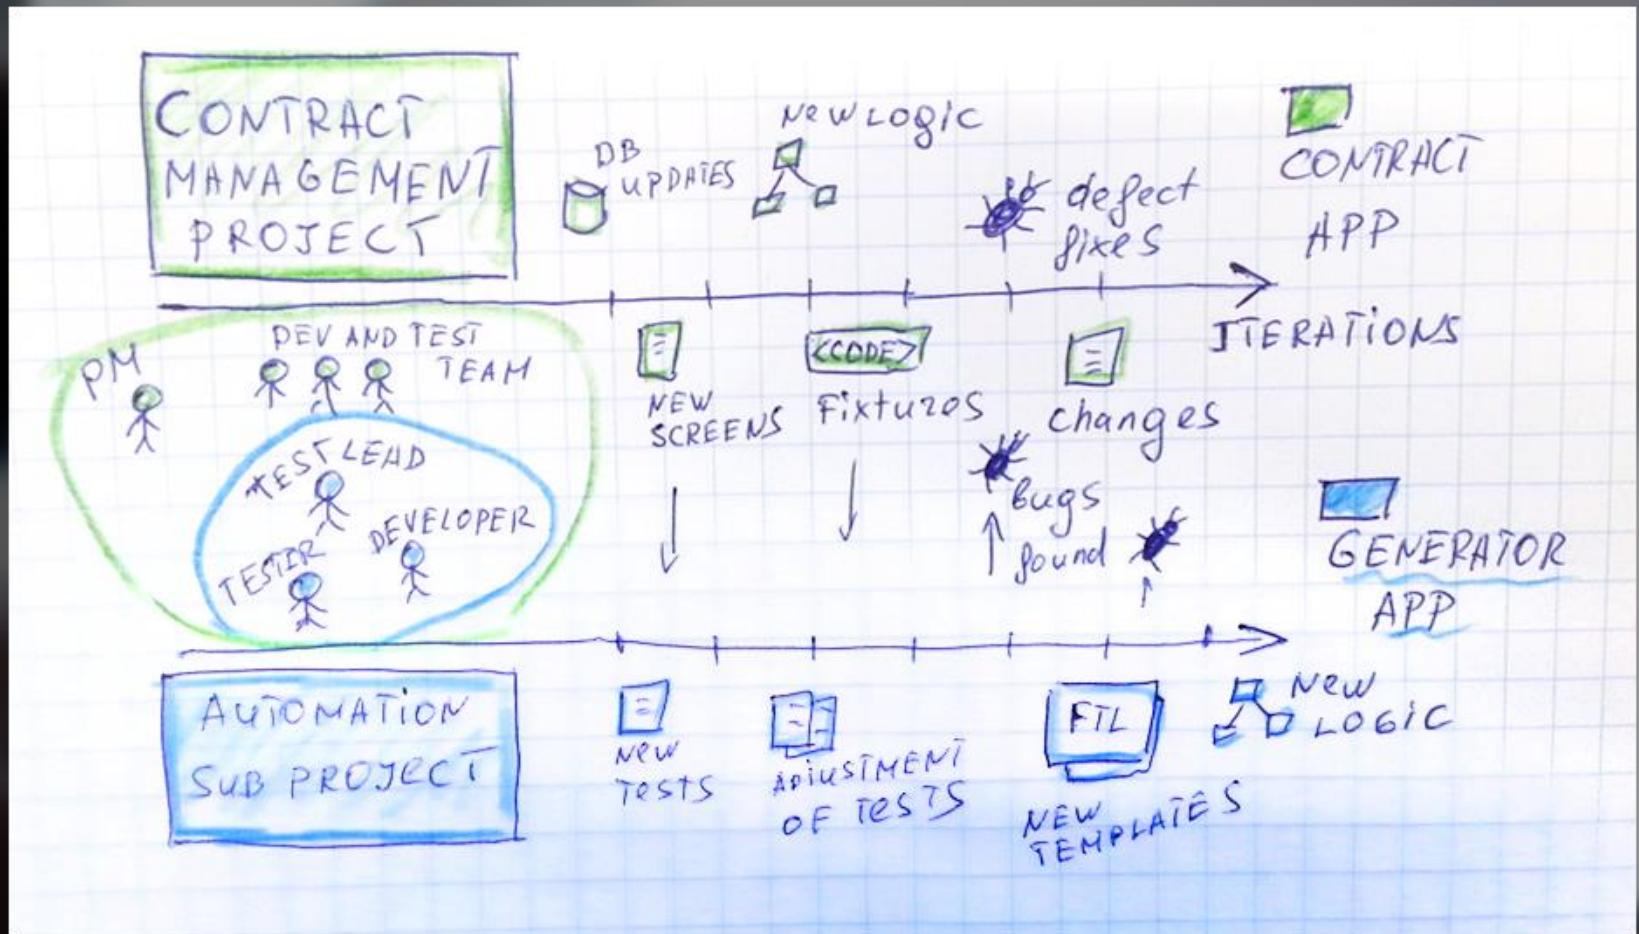 CONTRACT
MANAGEMENT
PROJECT
DB
UPDATES
NEW LOGIC
defect
fixes
CONTRACT
APP
ITERATIONS
PM
DEV AND TEST
TEAM
TEST LEAD
DEVELOPER
TESTER
NEW
SCREENS
<CODE>
Fixtures
changes
bugs
found
GENERATOR
APP
AUTOMATION
SUB PROJECT
NEW
TESTS
ADJUSTMENT
OF TESTS
FTL
NEW
TEMPLATES
NEW
LOGIC